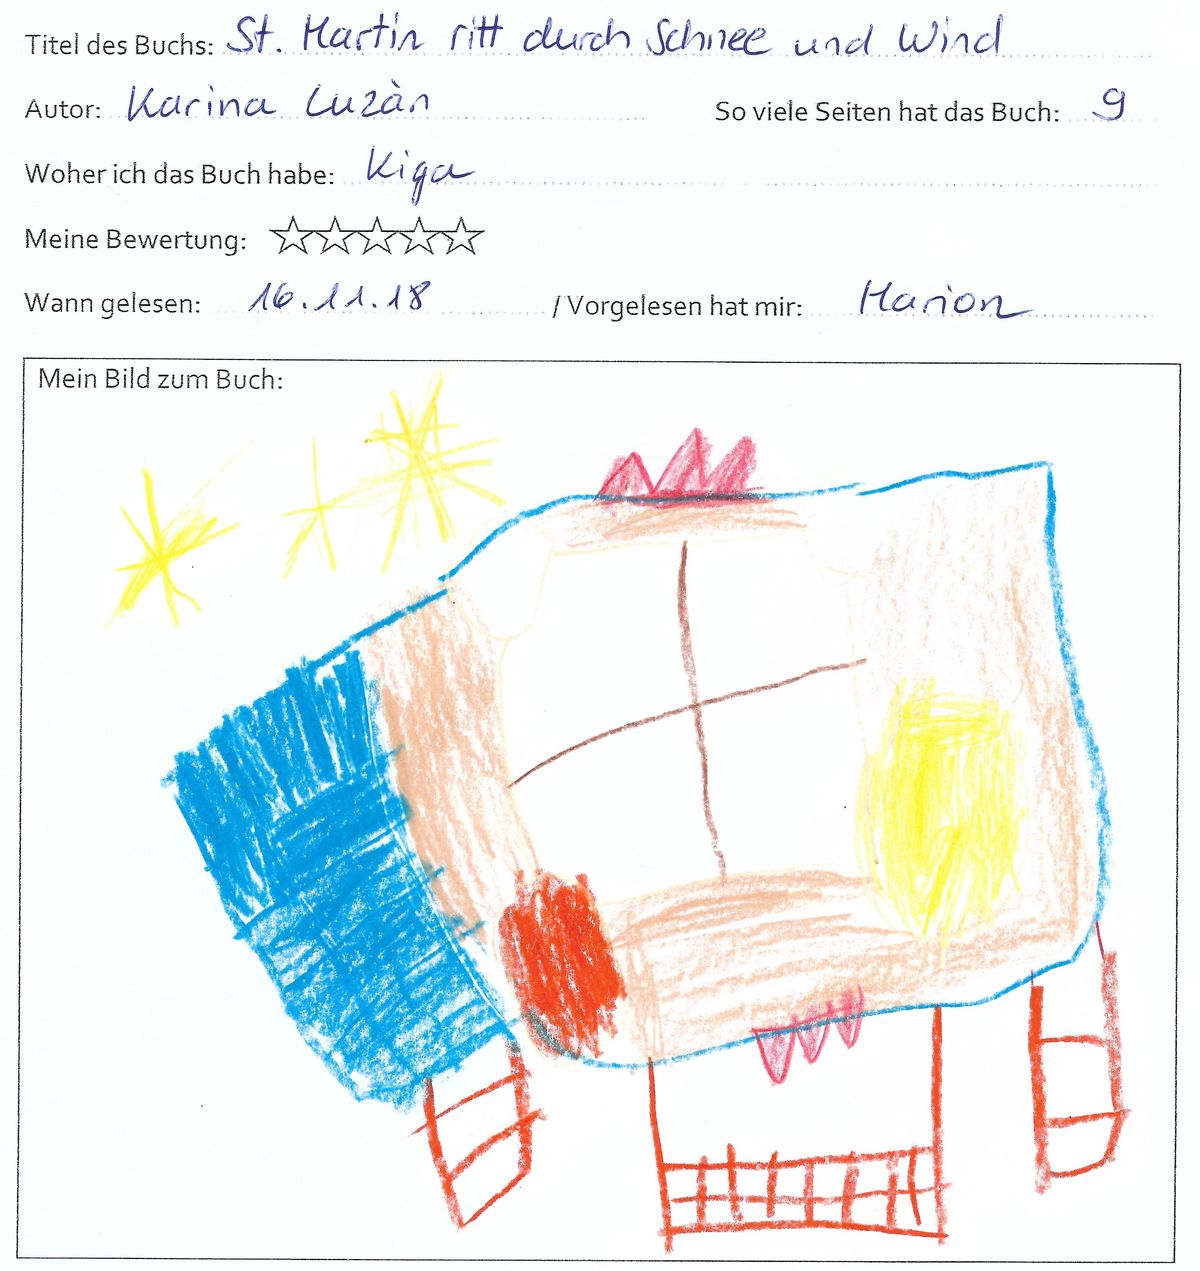 Titel des Buchs: St. Martin ritt durch Schnee und Wind
Autor: Karina Luzàn So viele Seiten hat das Buch: 9
Woher ich das Buch habe: Kiga
Meine Bewertung: ☆☆☆☆☆
Wann gelesen: 16.11.18 / Vorgelesen hat mir: Marion
Mein Bild zum Buch: